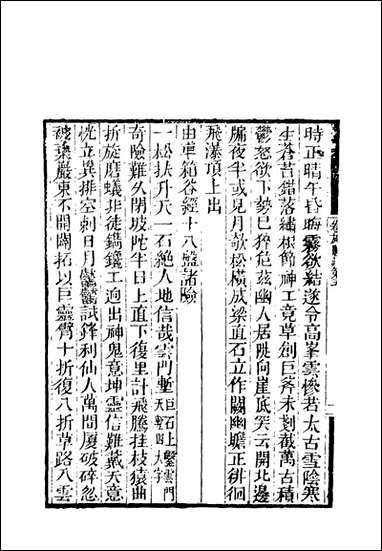 時正晴午昏晦靉欲結遂令高峯雲慘若太古雪陰寒
生蒼苔錯落繡根節神工竟草創巨斧未剗截萬古積
鬱怒欲下勢已猝危茲幽人居陡向崖底笑云開北邊
牖夜半或見月欹松橫成梁直石立作闕幽瞻正徘徊
飛瀑頂上出
由車箱谷經十八盤諸險
一松扶升天一石絕人地信哉雲門塹巨石上鑿雲門天塹四大字
奇險難久閉坡陀半日上直下復里計飛騰挂枝猿曲
折旋磨蟻非徒鐫鑱工迥出神鬼意坤靈信難戴天意
恍立異排空刺日月齾齾試鋒利仙人萬間厦破碎忽
棄嚴東不開闢拓以巨靈臂十折復八折草路八雲